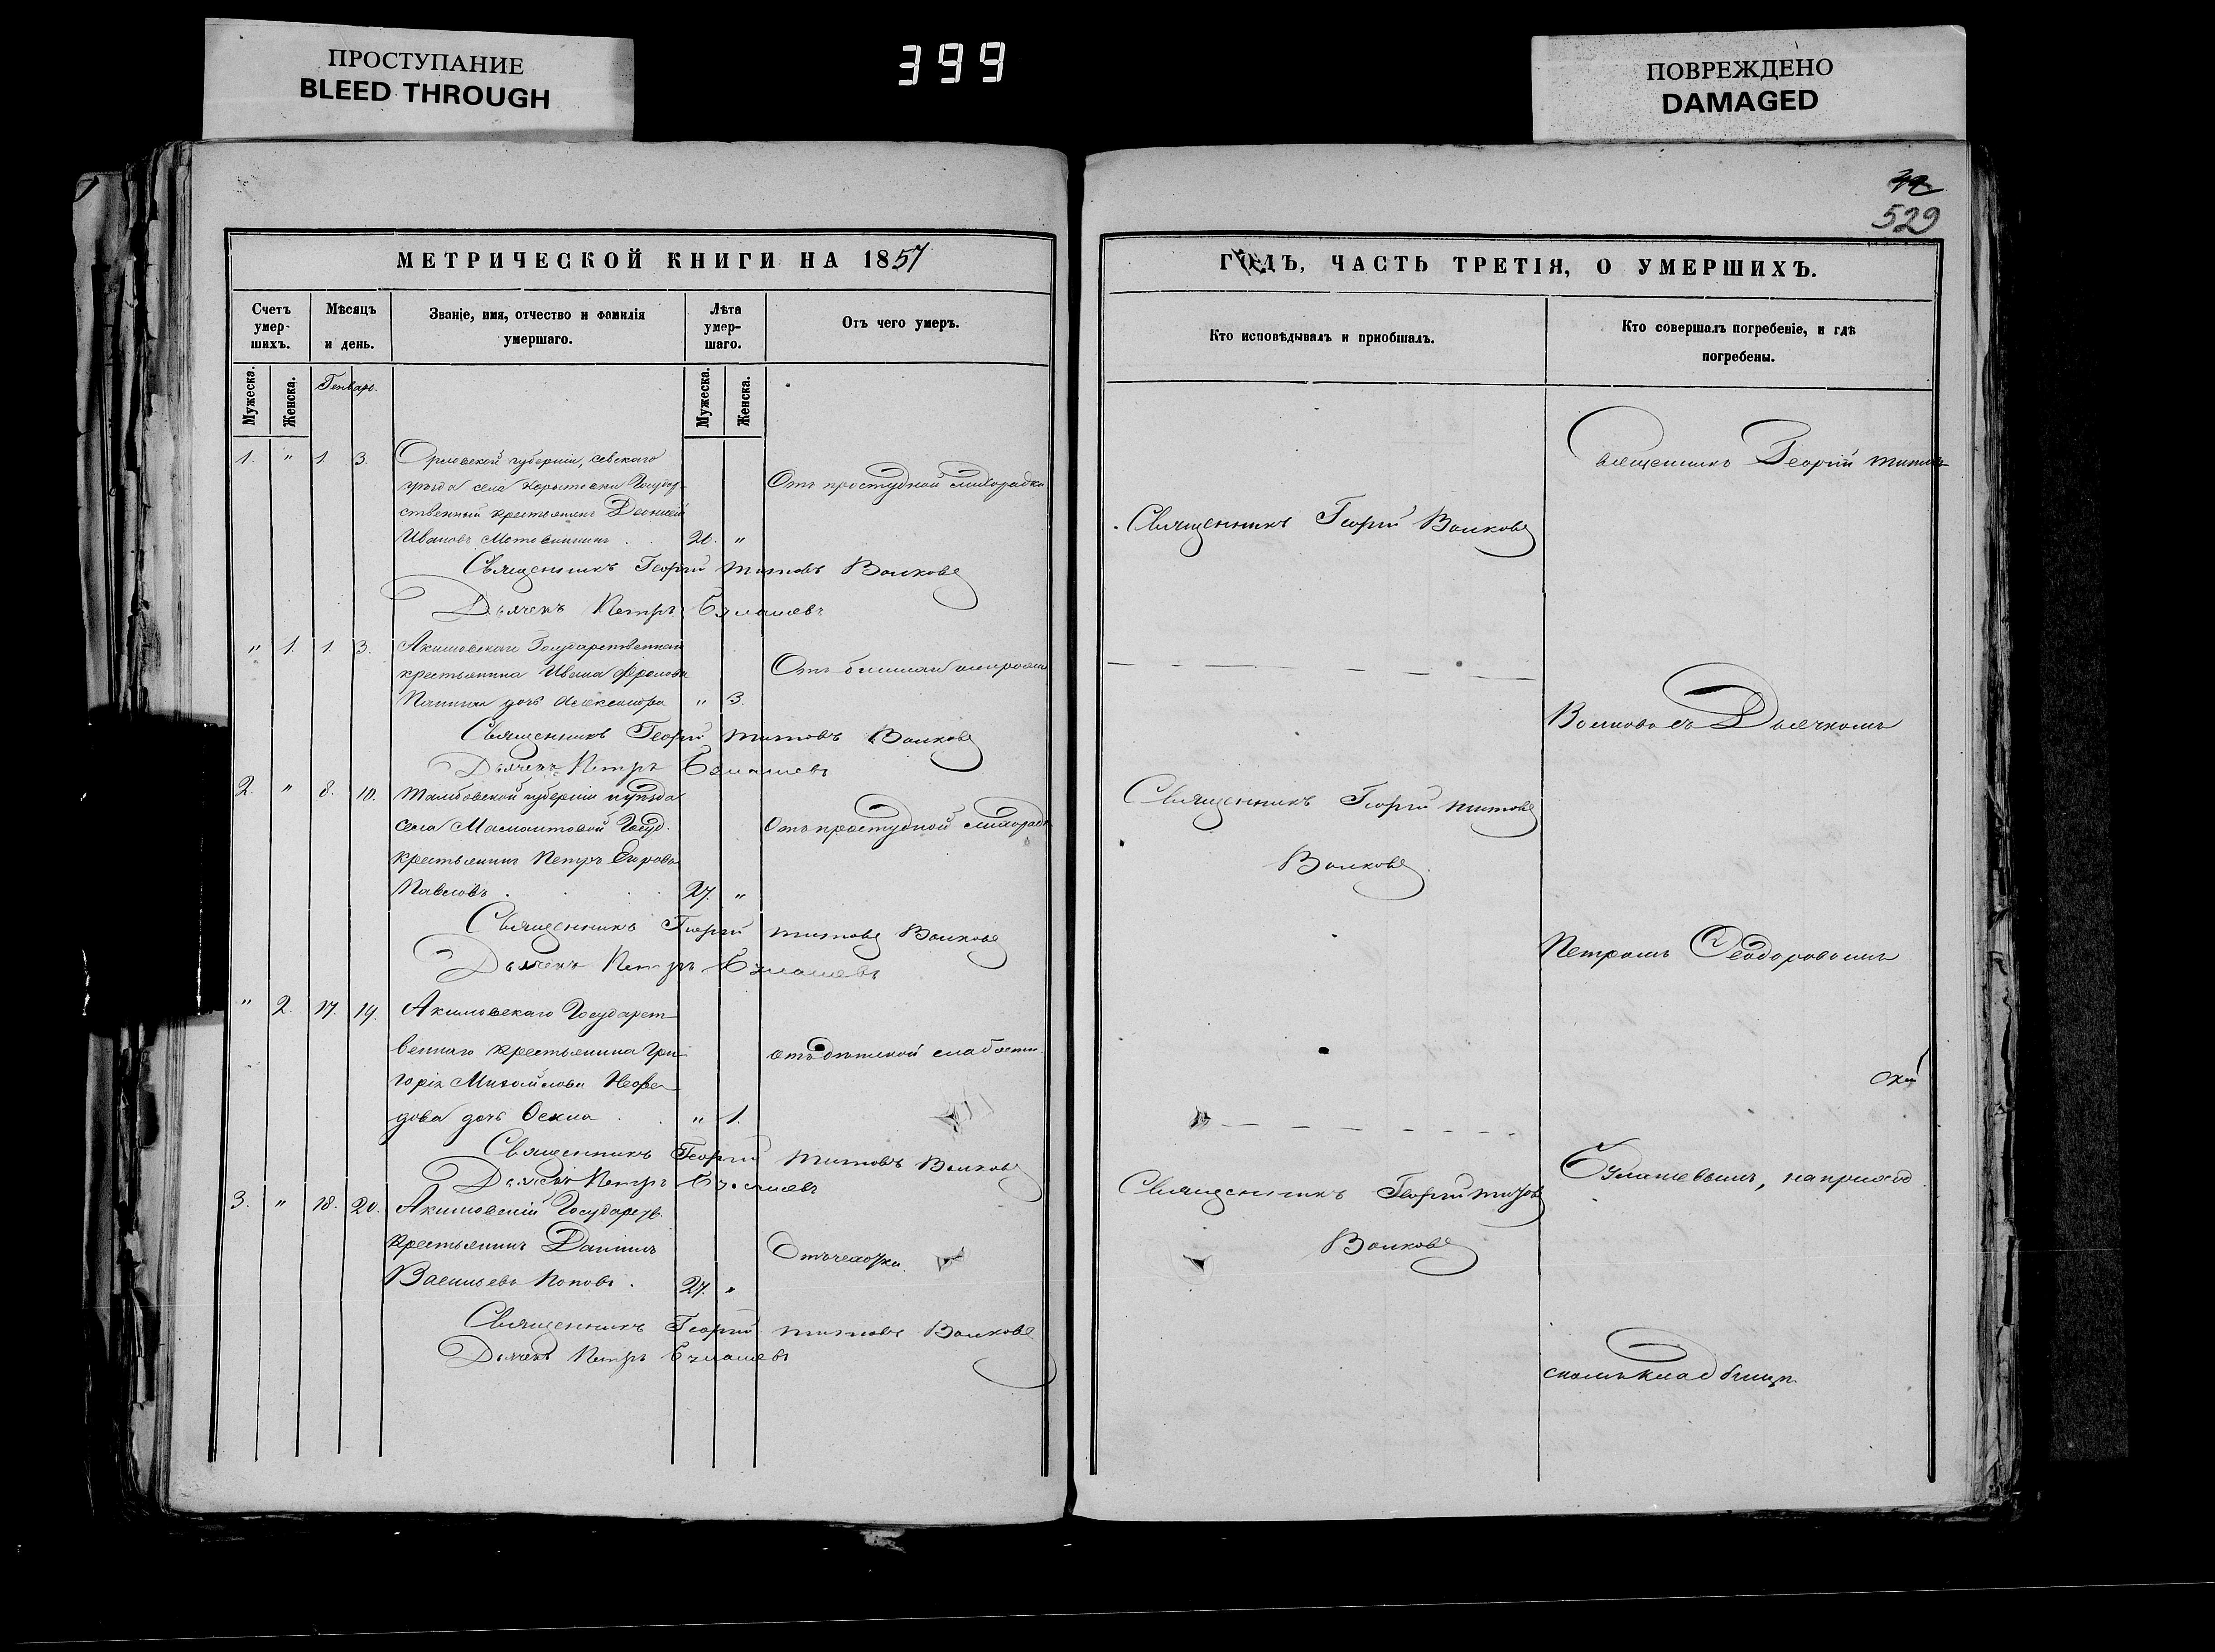 ПРОСТУПАНИЕ
BLEED THROUGH
399
ПОВРЕЖДЕНО
DAMAGED
529
МЕТРИЧЕСКОЙ КНИГИ НА 1857
Счетъ умер-шихъ.
Мѣсяцъ и день.
Званіе, имя, отчество и фамилія умершаго.
Лѣта умер-шаго.
Отъ чего умеръ.
Мужеска.
Женска.
Генварь.
Мужеска.
Женска.
1. " 1 3. Орловской губерніи, Севскаго
уѣзда села Государ-
ственный крестьянинъ
Ивановъ 20. "
Отъ простудной лихорадки
Священникъ Георгій Титовъ Волковъ
Дьячекъ Петръ Булашевъ
" 1. 1. 3. Акимовскаго Государственнаго
крестьянина Ивана Фролова
дочь Александра " 3.
Отъ
Священникъ Георгій Титовъ Волковъ
Дьячекъ Петръ Булашевъ
2. " 8. 10. Тамбовской губерніи и уѣзда
села Госуд.
крестьянинъ Петръ Егоровъ
Павловъ 27. "
Отъ простудной лихорадк
Священникъ Георгій Титовъ Волковъ
Дьячекъ Петръ Булашевъ
" 2. 17. 19. Акимовскаго Государст-
веннаго крестьянина Гри-
горія Михайлова Нефе-
дова дочь " 1.
отъ дѣтской слабости.
Священникъ Георгій Титовъ Волковъ
Дьячекъ Петръ Булашевъ
3. " 18. 20. Акимовскій Государств.
крестьянинъ Даніилъ
Васильевъ Поповъ. 27. "
Отъ чахотки.
Священникъ Георгій Титовъ Волковъ
Дьячекъ Петръ Булашевъ
ГОДЪ, ЧАСТЬ ТРЕТІЯ, О УМЕРШИХЪ.
Кто исповѣдывалъ и пріобщалъ.
Кто совершалъ погребеніе, и гдѣ погребены.
Священникъ Георгій Волковъ
Священникъ Георгій Титовъ
Волковъ
Священникъ Георгій Титовъ
Волковъ
Священникъ Георгій Титовъ
Волковъ съ Дьячкомъ
Петромъ Ѳеодоровымъ
Булашевымъ, на приход
скомъ кладбищѣ